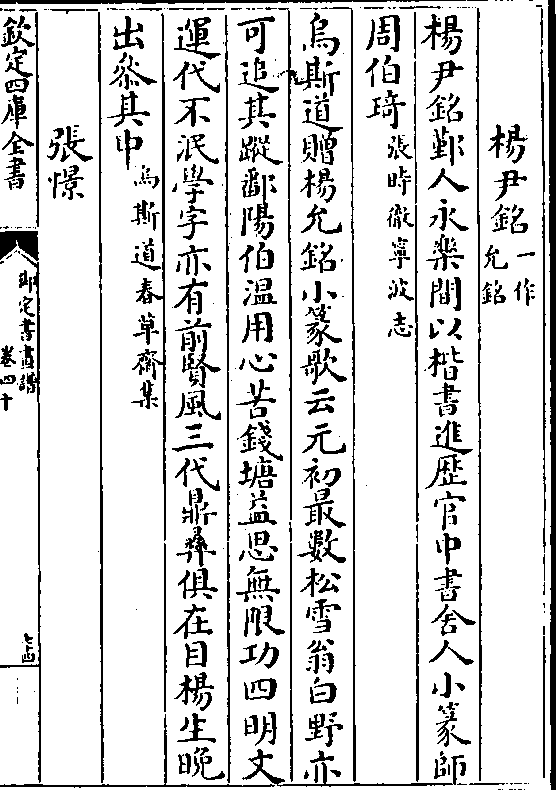 楊尹銘一作允銘
楊尹銘鄞人永樂間以楷書進歴官中書舍人小篆師
周伯琦張時徹寧波志
烏斯道贈楊允銘小篆歌云元初最數松雪翁白野亦
可追其蹤鄱陽伯温用心苦錢塘益思無限功四明文
運代不泯學字亦有前賢風三代鼎彝俱在目楊生晚
出叅其中烏斯道春草齋集
張憬
欽定四庫全書
御定書畫譜
卷四十
七四